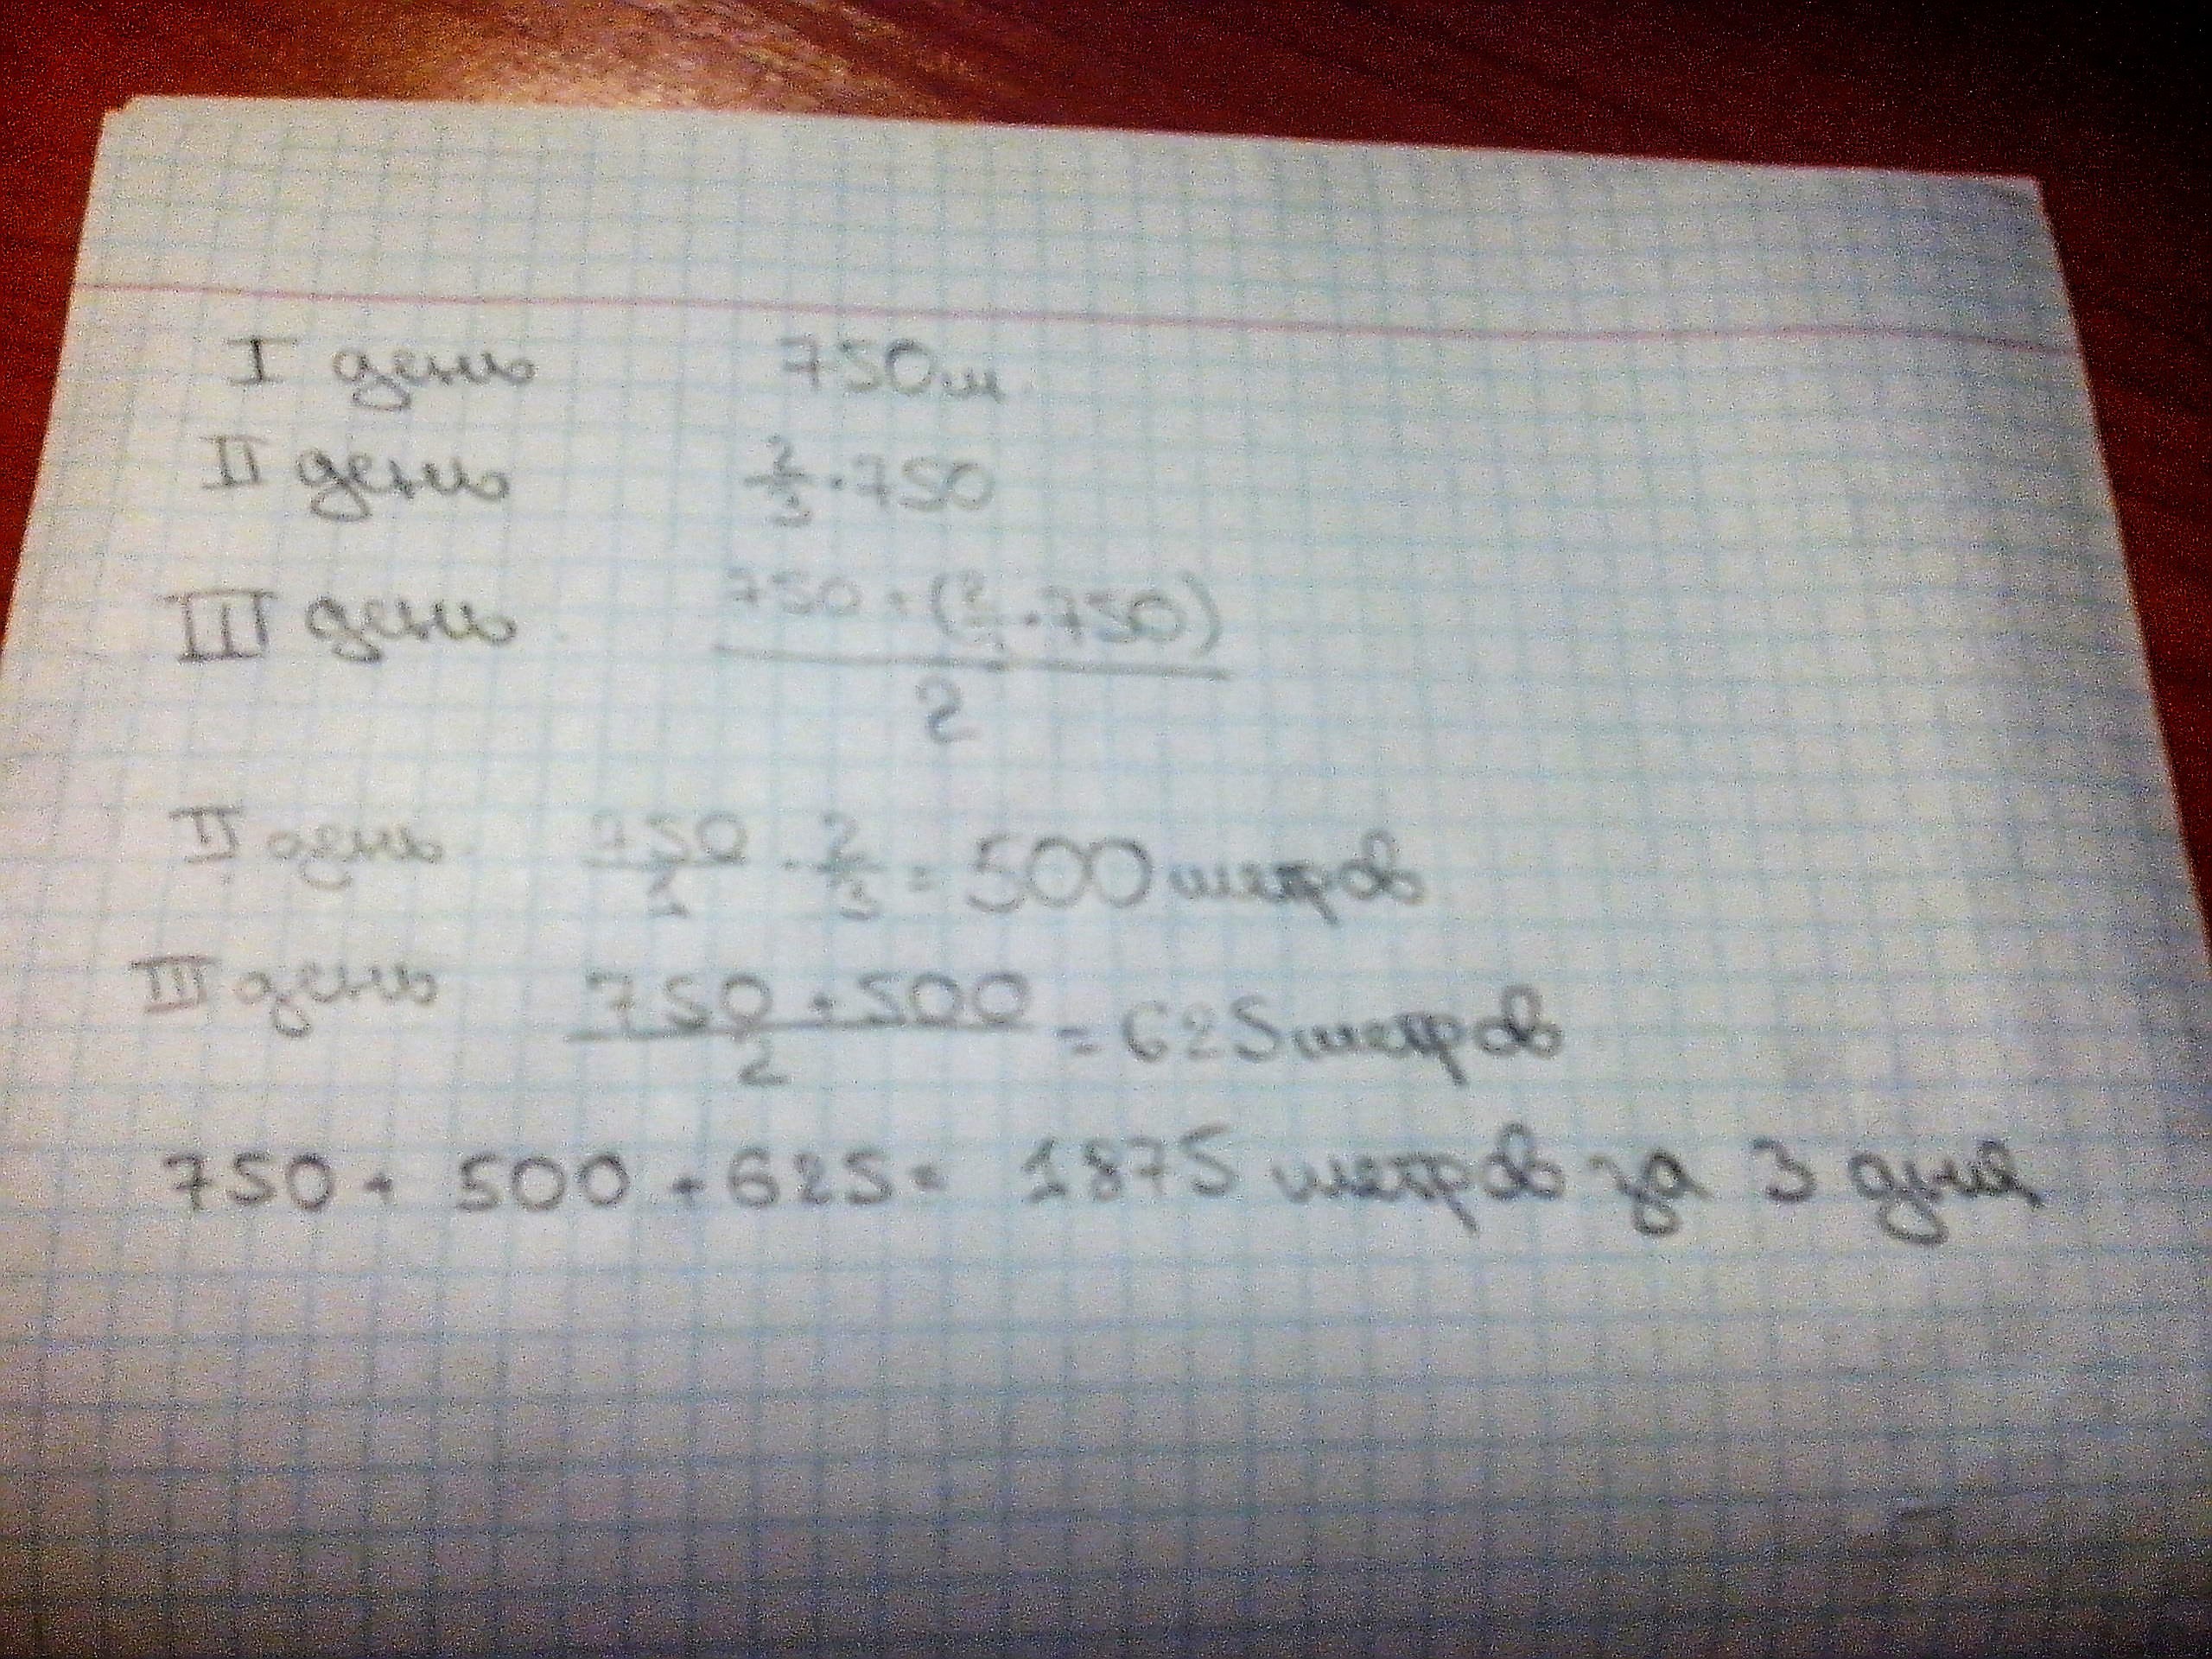 I день 750м
II день 2/3 · 750
III день (750 + (2/3 · 750))/2
II день 750/1 · 2/3 = 500 метров
III день (750 + 500)/2 = 625 метров
750 + 500 + 625 = 1875 метров за 3 дня